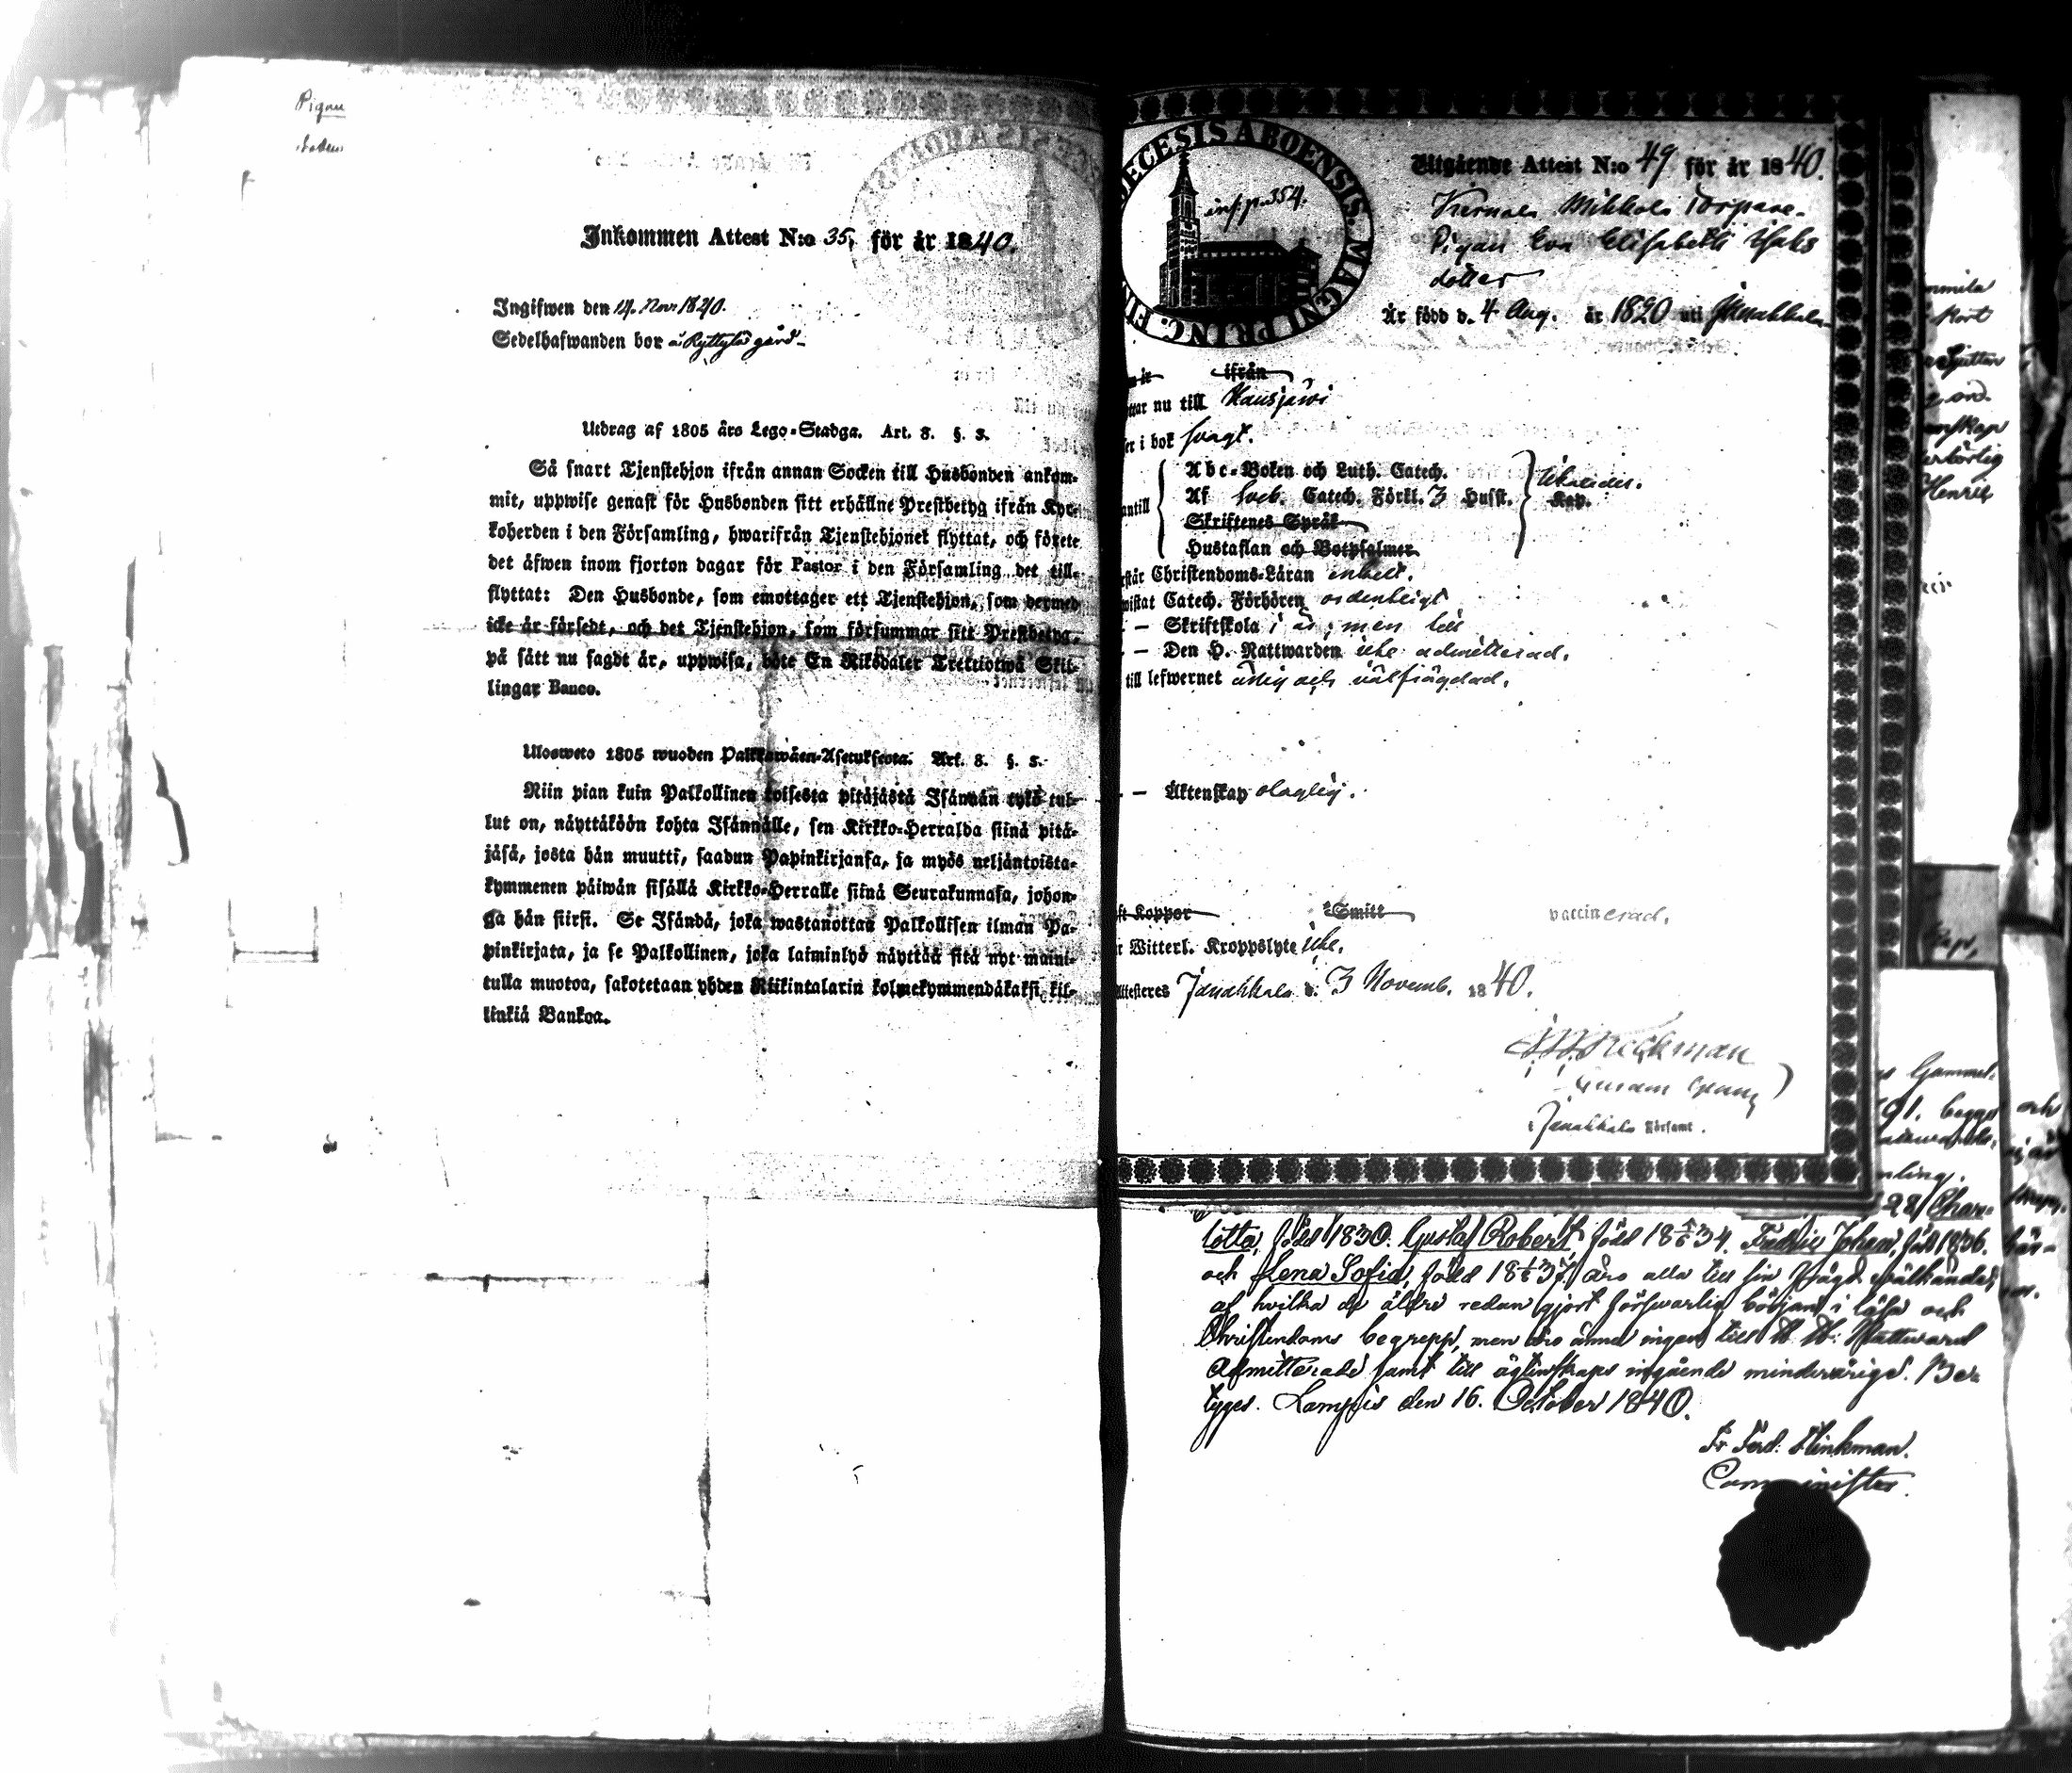 Pigan
Inkommen Attest N:o 35, för år 1840.
Ingifwen den 14. Nov. 1840.
Sedelhafwanden bor å Ryttylä gård
Utdrag af 1805 års Lego-Stadga. Art. 8. §. 3.
Så snart Tjenstehjon ifrån annan Socken till Husbonden ankom-
mit, uppwise genast för Husbonden sitt erhållne Prestbetyg ifrån Kyr-
koherden i den Församling, hwarifrån Tjenstehjonet flyttat, och förete
det äfwen inom fjorton dagar för Pastor i den Församling det till-
flyttat: Den Husbonde, som emottager ett Tjenstehjon, som dermed
icke är försedt, och det Tjenstehjon, som försummar sitt Prestbetyg,
på sätt nu sagdt är, uppwisa, böte En Riksdaler Trettiotwå Skil-
lingar Banco.
Ulosweto 1805 wuoden Palkkawäen-Asetuksesta. Art. 8. §. 3.
Niin pian kuin Palkollinen toisesta pitäjästä Isännän tykö tul-
lut on, näyttäköön kohta Isännälle, sen Kirkko-Herralda siinä pitä-
jäsä, josta hän muutti, saadun Papinkirjansa, ja myös neljäntoista-
kymmenen päiwän sisällä Kirkko-Herralle siinä Seurakunnasa, johon-
ga hän siirsi. Se Isändä, joka wastanottaa Palkollisen ilman Pa-
pinkirjata, ja se Palkollinen, joka laiminlyö näyttää sitä nyt maini-
tulla muotoa, sakotetaan yhden Riikintalarin kolmekymmendäkaksi kil-
linkiä Bankoa.
ECESIS ABOENSIS. MAGNI PRINC. FIN
inf. p. 354.
Utgående Attest N:o 49 för år 1840.
Mikkola Torpare-
Pigan Eva Elisabeth Isaks
dotter
Är född d. 4 Aug. år 1820 uti Janakkala
ifrån
ttar nu till Hausjärvi
er i bok svagt.
Abc-Boken och Luth. Catech.
Af Sveb. Catech. Förkl. 3 Husst.
antill
Skriftenes Språk
Hustaflan och Botpsalmer
rstår Christendoms-Läran enkelt.
wistat Catech. Förhören ordentligt
– – Skriftskola i år, men
– – Den H. Nattwarden icke admitterad.
till lefwernet ärlig och välfrägdad.
– – Äktenskap olaglig.
ft Koppor Smitt vaccinerad.
r Witterl. Kroppslyte icke.
Attesteras Janakkala d. 3 Novemb. 1840.
i Janakkala Församl.
lotta, född 1830. Gustaf Robert, född 18 34. Fredric Johan, född 1836.
och Lena Sofia, född 18 37, äro alla till sin frägd välkända,
af hvilka de äldre redan gjort försvarlig början i läsa och
Christendoms begrepp, men äro ännu ingen till H. H. Nattvard
Admitterade samt till ägtenskaps ingående minderåriga. Be-
tyges. Lampis den 16. October 1840.
Fr. Ferd. Flinkman.